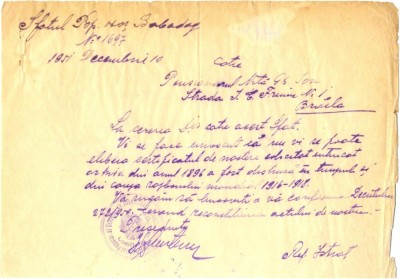 Sfatul Pop. oraș Babadag
No 1697
1951 Decembrie 10
Catre
Pensionarul Niță Gh. Ion
Strada I. C. Frimu N. 1
Braila
La cererea Dvs catre acest Sfat.
Vi se face cunoscut că nu vi se poate
elibera certificatul de naștere solicitat întrucat
arhiva din anul 1896 a fost distrusă în timpul și
din cauza războiului mondial 1916-1918.
Vă rugăm să binevoiți a vă conforma Decretului
272/950 cerand reconstituirea actului de naștere.
Președinte